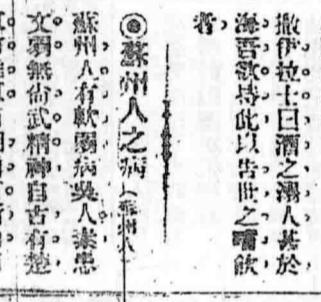 撒伊拉士曰酒之溺人甚於
海吾欲持此以告世之嗜飲
者
◎蘇州人之病（蘇州人
蘇州人有軟弱病吳人素患
文弱無尙武精神自古有楚